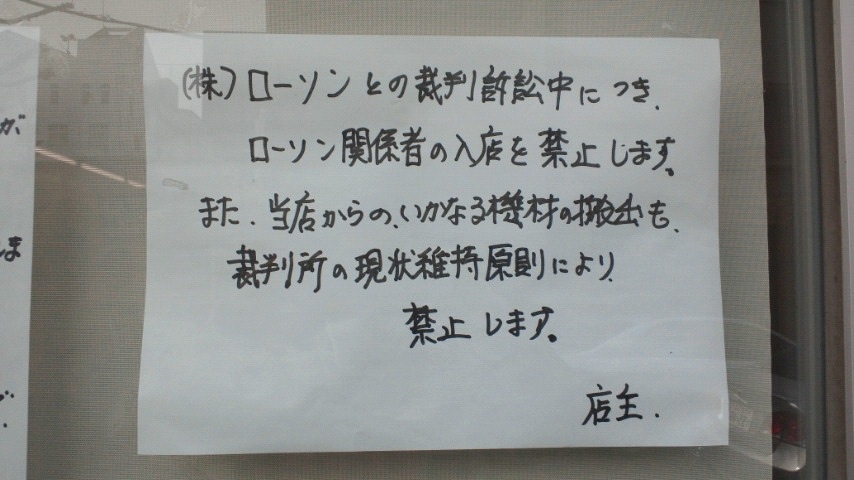 (株)ローソンとの裁判訴訟中につき、
ローソン関係者の入店を禁止します。
また、当店からの、いかなる機材の搬出も、
裁判所の現状維持原則により、
禁止します。
店主.
が
ま